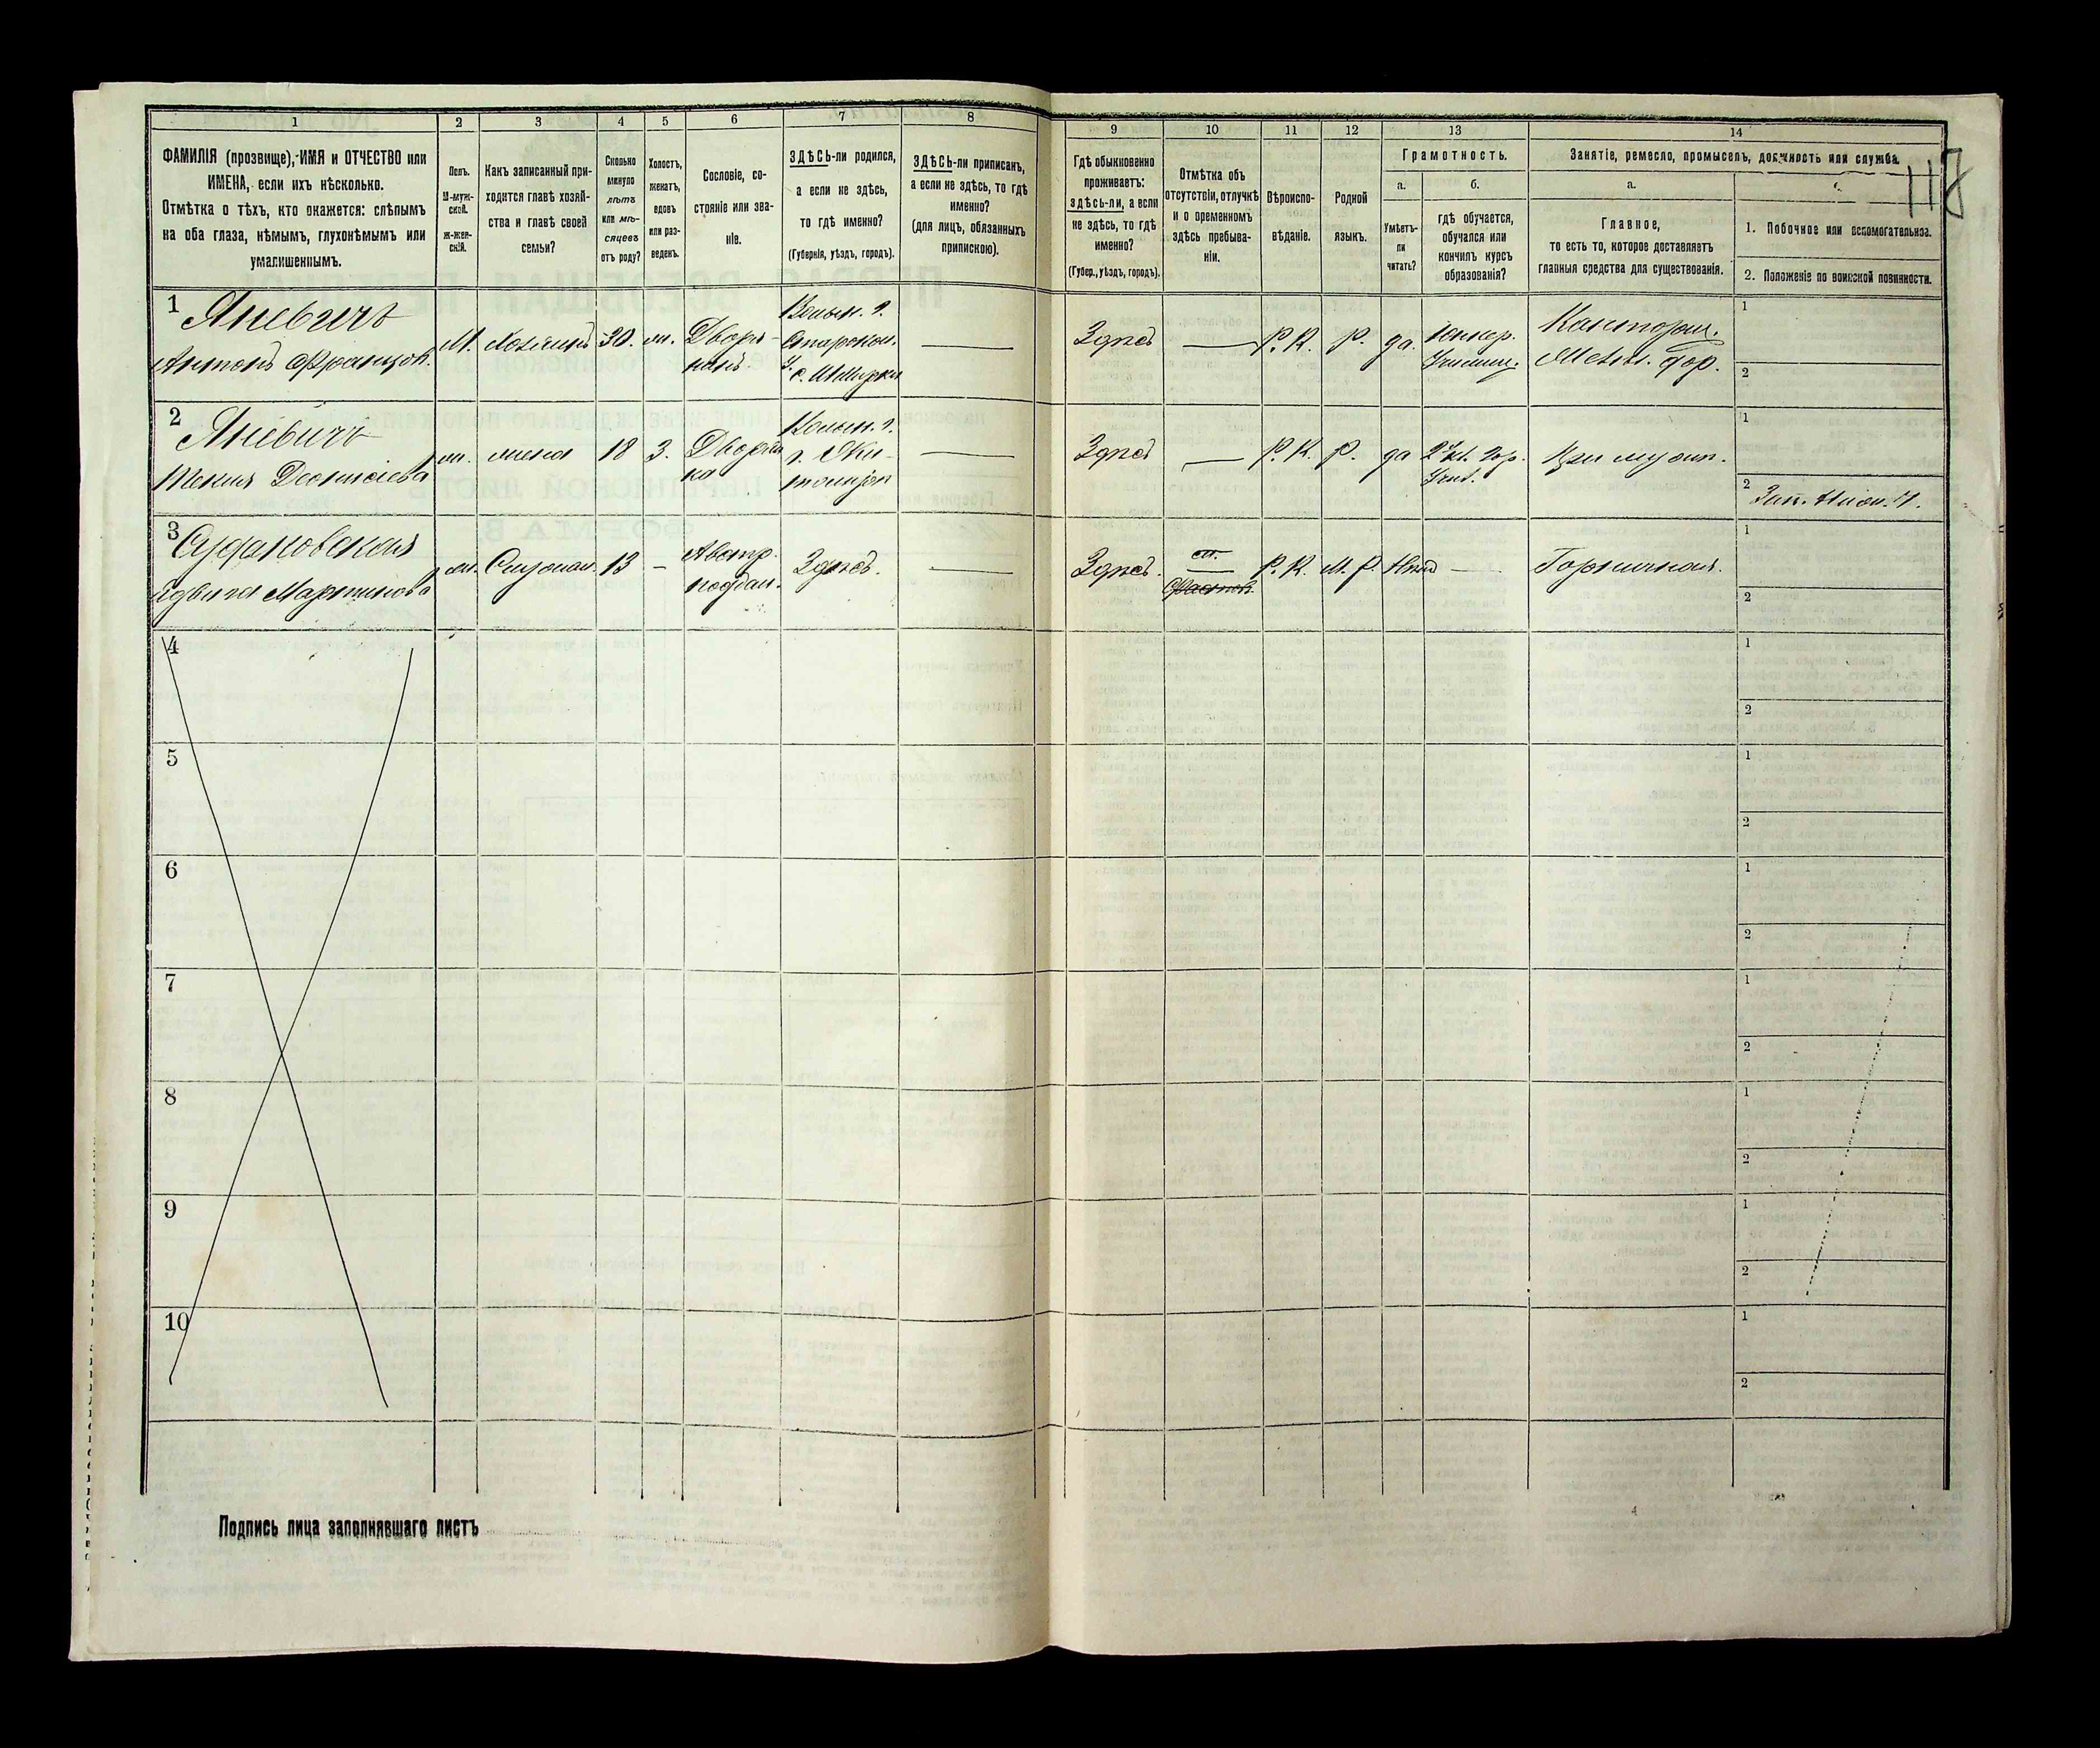 1 2 3 4 5 6 7 8 9 10 11 12 13 14
ФАМИЛІЯ (прозвище), ИМЯ и ОТЧЕСТВО или
ИМЕНА, если ихъ нѣсколько.
Отмѣтка о тѣхъ, кто окажется: слѣпымъ
на оба глаза, нѣмымъ, глухонѣмымъ или
умалишеннымъ.
Полъ.
М-муж-
ской.
ж-жен-
скій.
Какъ записанный при-
ходится главѣ хозяй-
ства и главѣ своей
семьи?
Сколько
минуло
лѣтъ
или мѣ-
сяцевъ
отъ роду?
Холостъ,
женатъ,
вдовъ
или раз-
веденъ.
Сословіе, со-
стояніе или зва-
ніе.
ЗДѢСЬ-ли родился,
а если не здѣсь,
то гдѣ именно?
(Губернія, уѣздъ, городъ).
ЗДѢСЬ-ли приписанъ,
а если не здѣсь, то гдѣ
именно?
(для лицъ, обязанныхъ
припискою).
Гдѣ обыкновенно
проживаетъ:
здѣсь-ли, а если
не здѣсь, то гдѣ
именно?
(Губер., уѣздъ, городъ).
Отмѣтка объ
отсутствіи, отлучкѣ
и о временномъ
здѣсь пребыва-
ніи.
Вѣроиспо-
вѣданіе.
Родной
языкъ.
Грамотность.
а.
Умѣетъ-
ли
читать?
б.
гдѣ обучается,
обучался или
кончилъ курсъ
образованія?
Занятіе, ремесло, промыселъ, должность или служба.
а.
Главное,
то есть то, которое доставляетъ
главныя средства для существованія.
1. Побочное или вспомогательное.
2. Положеніе по воинской повинности.
118
1 Яневичъ
Антонъ Францов.
М. Хозяинъ 30. ж. Дворя-
нинъ.
Волын. г.
Здѣсь — Р.К. Р. да Юнкер.
Училищ.
1
2
2 Яневичъ
ж. жена 18 З. Дворян
ка
Волын. г.
г. Жи-
томір
Здѣсь — Р.К. Р. да 2 кл. Гор.
Учил.
При муж.
1
2
3
Ядвига Мартинова
ж. Служан. 13 — Австр.
поддан.
Здѣсь. — Здѣсь. Р.К. М.Р. Нѣтъ — Горничная.
1
2
4 1
2
5 1
2
6 1
2
7 1
2
8 1
2
9 1
2
10 1
2
Подпись лица заполнявшаго листъ